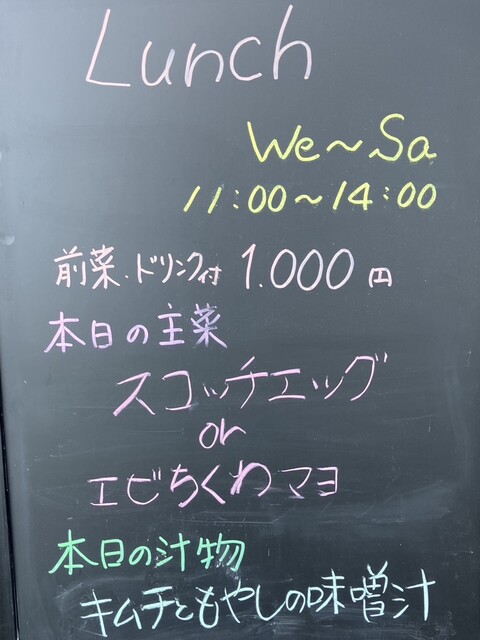 Lunch
We～Sa
11:00～14:00
前菜・ドリンク付 1.000円
本日の主菜
スコッチエッグ
or
エビちくわマヨ
本日の汁物
キムチともやしの味噌汁